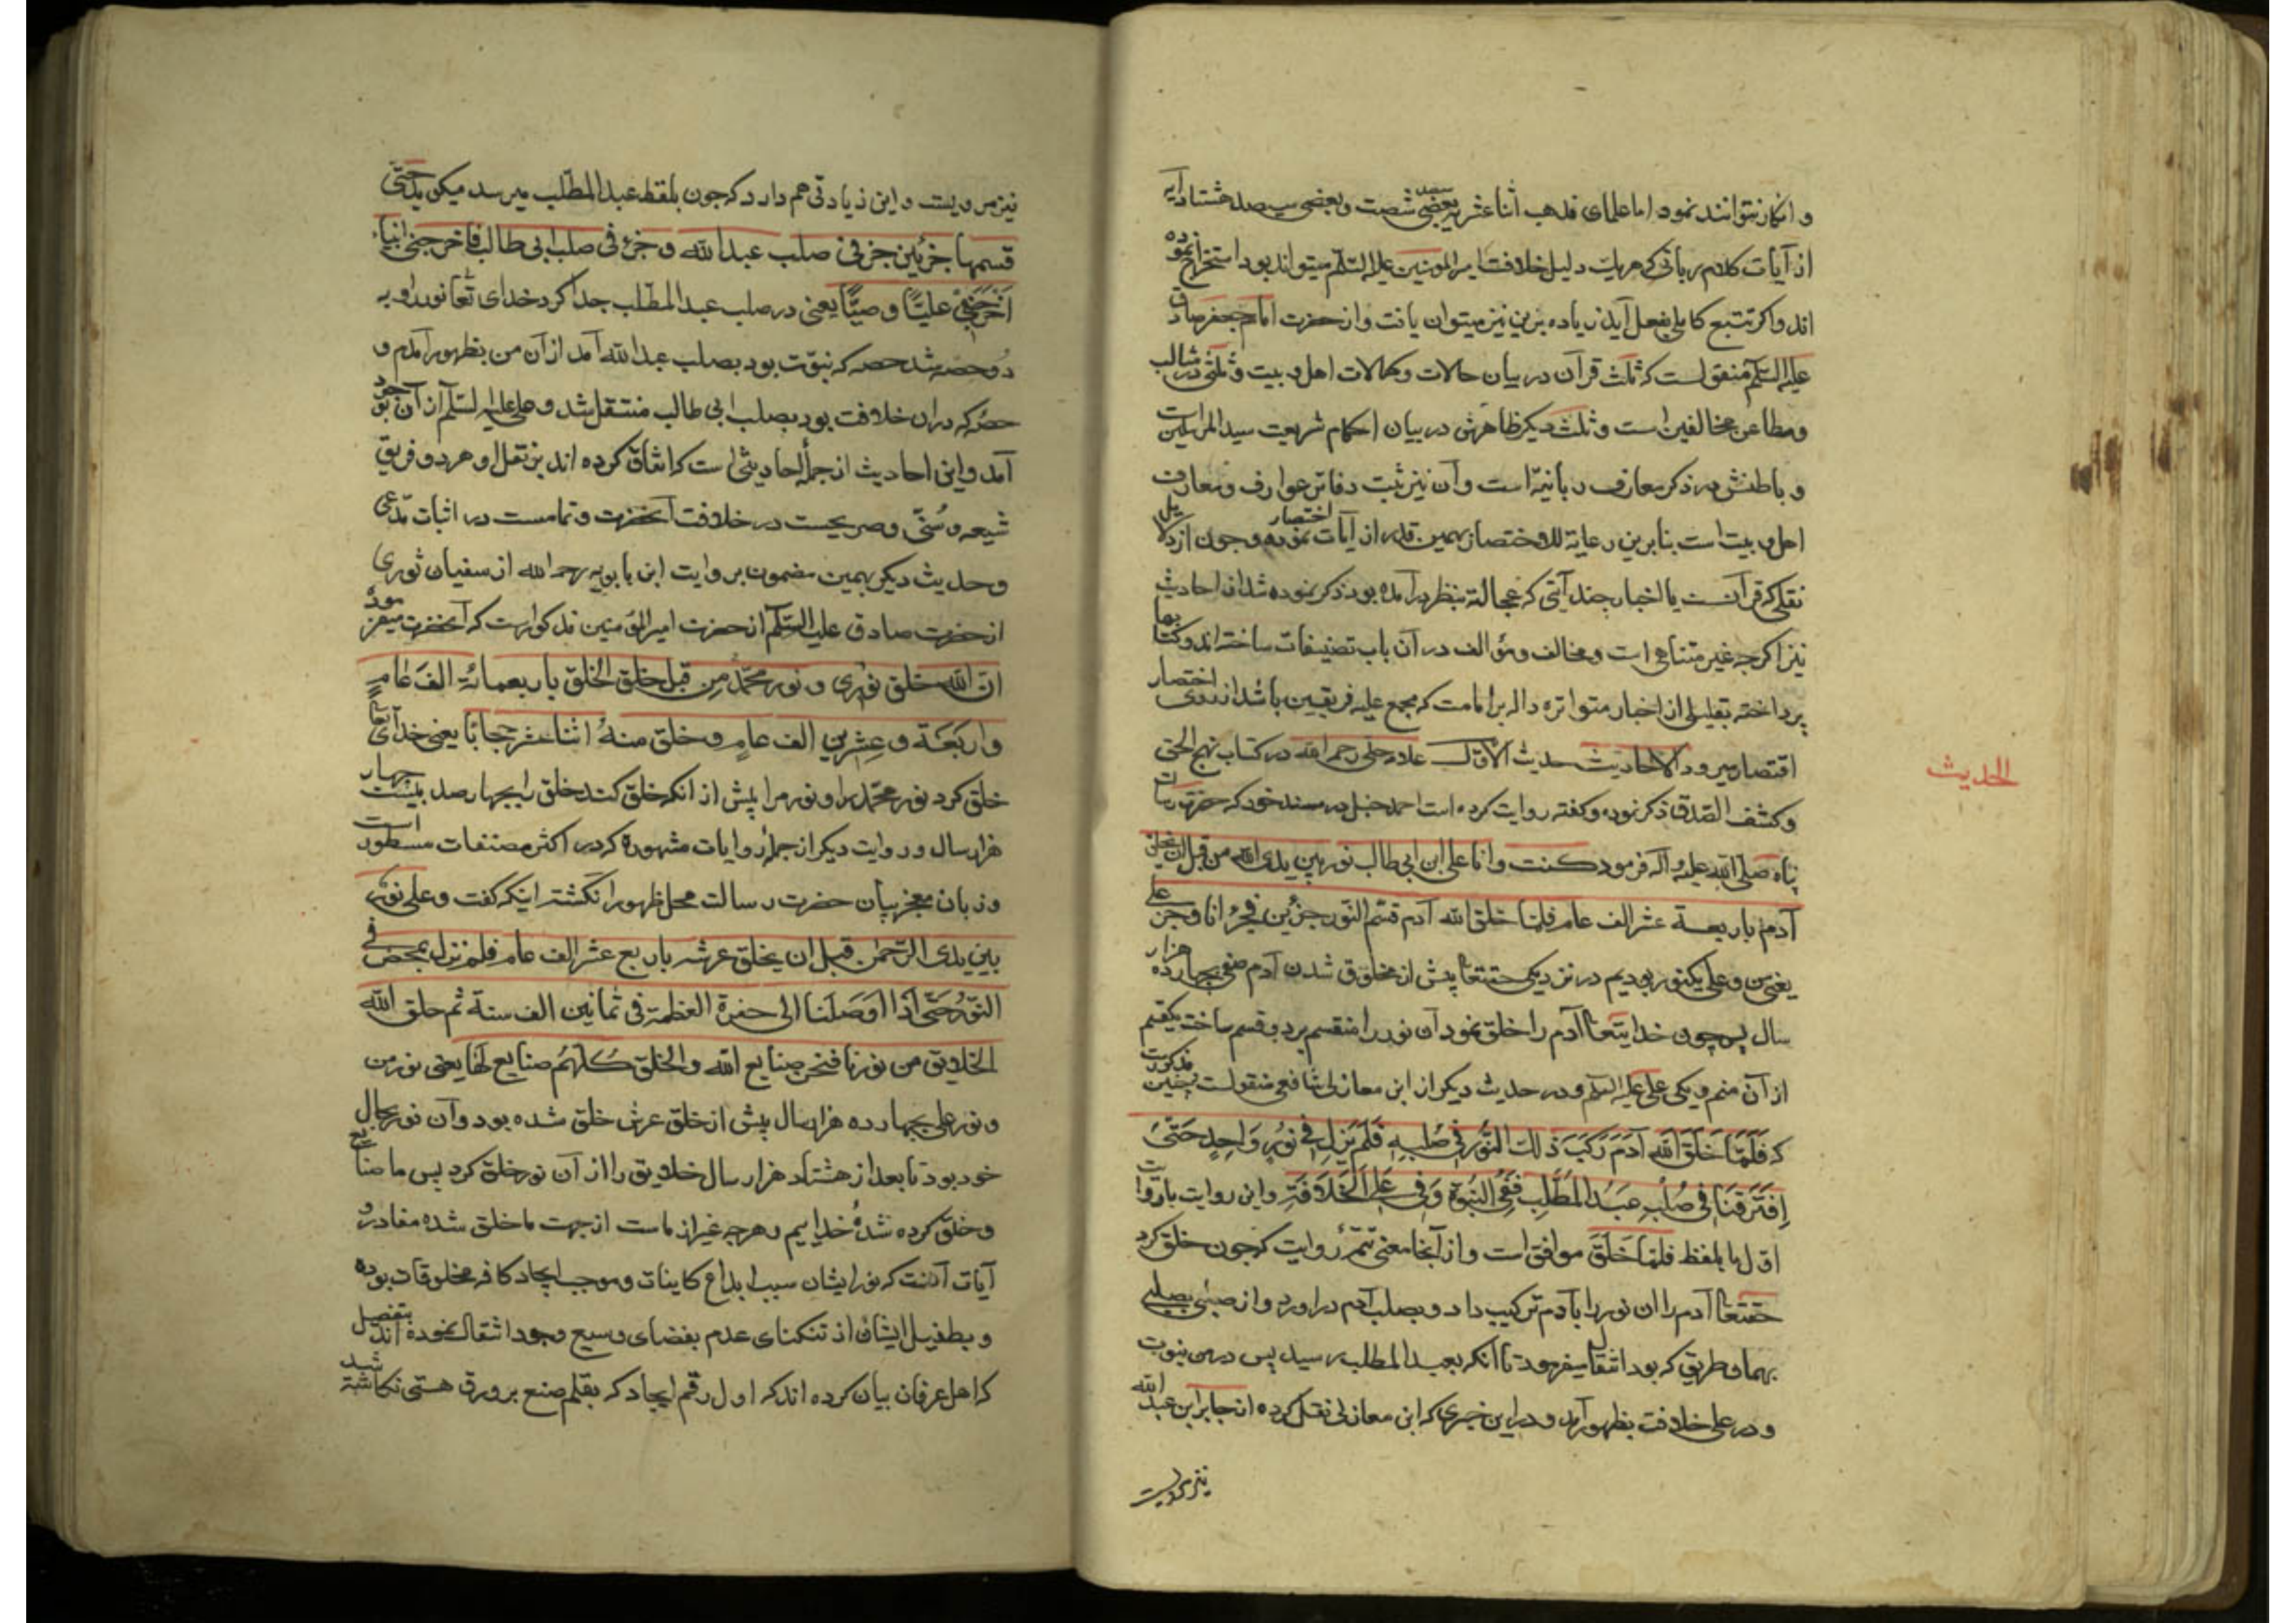 و انکار نتوانند نمود اما علمای مذهب اثنا عشریه بعضی سیصد شصت و بعضی سیصد هشتاد آیه
از آیات کلام ربانی که هر یک دلیل خلافت امیرالمومنین علیه السلم میتواند بود استخراج نموده
اند و اکر تتبع کاملی بفعل آید زیاده برین نیز میتوان یافت و از حضرت امام جعفر صادق
علیه السلم منقولست که ثلث قرآن در بیان حالات و کمالات اهل بیت و ثلثی در مثالب
و مطاعن مخالفین است و ثلث دیکر ظاهرش در بیان احکام شریعت سید المرسلین است
و باطنش در ذکر معارف ربانیه است و آن نیز ثبت دفاتر عوارف و معارف
اهل بیت است بنابرین رعایة للاختصار بهمین قدر از آیات اختصار نموده و چون از دلایل
نقلی که قرآنست یا اخبار چند آیتی که عجالة بنظر در آمده بود ذکر نموده شد از احادیث
نیز اکرچه غیر متناهی است و مخالف و مؤالف در آن باب تصنیفات ساخته اند و کتابها
پرداخته بقلیلی از اخبار متواتره داله بر امامت که مجمع علیه فریقین باشد از روی اختصار
اقتصار میرود الاحادیث حدیث الاول علامه حلی رحمه الله در کتاب نهج الحق
الحدیث
و کشف الصدق ذکر نموده و کفته روایت کرده است احمد حنبل در مسند خود که حضرت رسالت
پناه صلی الله علیه و آله فرمود کنت و انا علی ابن ابی طالب نور بین یدی الله من قبل ان یخلق
آدم باربعة عشر الف عام فلما خلق الله آدم قسم النور جزئین فجزء انا و جزء علی
یعنی من و علی یکنور بودیم در نزدیکی حقتعا پیش از مخلوق شدن آدم صفی بچهارده هزار
سال پس چون خدایتعا آدم را خلق نمود آن نور را منقسم بر دو قسم ساخت یکقسم
از آن منم و یکی علی علیه السلم و در حدیث دیکر از ابن مغازلی شافعی منقولست چنین مذکورست
که فَلَمّا خَلَقَ اللّه آدَمَ رَکَبَ ذلِکَ النُّورَ فی صُلبِهِ فَلَم یَزَل فی نُورٍ وَاحِدٍ حَتّیٰ
اِفتَرَقنَا فی صُلبِ عَبدُ المُطَّلِبِ فَفِیّ النُبوّة وَفی عَلیّ الخَلَافَةِ و این روایت باروایت
اول با بلفظ فلمّا خَلَقَ موافق است و از آنجا معنی تتمّه روایت که چون خلق کرد
حقتعا آدم را ان نور را با آدم ترکیب داد و بصلب آدم در اورد و از صلبی بصلبی
بهمان طریق که بود انتقال میفرمود تا آنکه بعبد المطلب رسید پس در من نبوت
و در علی خلافت بظهور آمد و در این خبری که ابن مغازلی نقل کرده از جابر ابن عبد الله
نیز مرویست
نیز مرویست و این زیادتی هم دارد که چون بلفظ عبد المطّلب میرسد میکوید حتّی
قسمها جزئین جزء فی صلب عبد الله و جزء فی صلب ابی طالب فاخرجنی انبیاء
اَخرَجَ علیّاً وصیّاً یعنی در صلب عبد المطّلب جدا کرد خدای تعا نور را و به
دو حصه شد حصه که نبوّت بود بصلب عبد الله آمد از آن من بظهور آمدم و
حصّه که در ان خلافت بود بصلب ابی طالب منتقل شد و علی علیه السلم از آن بوجود
آمد و این احادیث از جمله احادیثی است که اتفاق کرده اند بر نقل او هر دو فریق
شیعه و سُنّی و صریحست در خلافت آنحضرت و تمامست در اثبات مدّعی
و حدیث دیکر بهمین مضمون بروایت ابن بابویه رحمه الله از سفیان ثوری
از حضرت صادق علیه السلم از حضرت امیر المؤمنین مذکور است که آنحضرت میفرمود
انّ الله خلق نوری و نور محمّد مِن قبل خلق الخلق باربعمائة الفَ عام
و اربَعَة و عِشرین الف عام و خلق منهُ اثنا عشر حجابًا یعنی خدای تعا
خلق کرد نور محمّد را و نور مرا پیش از انکه خلق کند خلق را بچهارصد بیست چهار
هزار سال و روایت دیکر از جمله روایات مشهوره که در اکثر مصنفات مسطور است
و زبان معجز بیان حضرت رسالت محل ظهور را نکشته اینکه کفت و علی نوری
بین یدی الرّحمن قبل ان یخلق عرشه باربع عشر الف عام فلم نزل نمحض فی
النّور حتّی اذا اوصَلنا الی حفرة العظمة فی ثمانین الف سنة ثم خلق الله
الخلایق من نورنا فنحن صنایع الله و الخلق کلّهُم صنایع لنا یعنی نور من
و نور علی بچهارده هزار سال پیش از خلق عرش خلق شده بود و آن نور بحال
خود بود تا بعد از هشتاد هزار سال خلایق را از آن نور خلق کرد پس ما صنایع
و خلق کرده شدهٔ خداییم و هرچه غیر از ماست از جهت ما خلق شده مفاد
آیات آنست که نور ایشان سبب ابداع کاینات و موجب ایجاد کافه مخلوقات بوده
و بطفیل ایشان از تنکنای عدم بفضای وسیع وجود انتقال نموده اند بتفصیل
که اهل عرفان بیان کرده اند که اول رقم ایجاد که بقلم صنع بر ورق هستی نکاشته شد